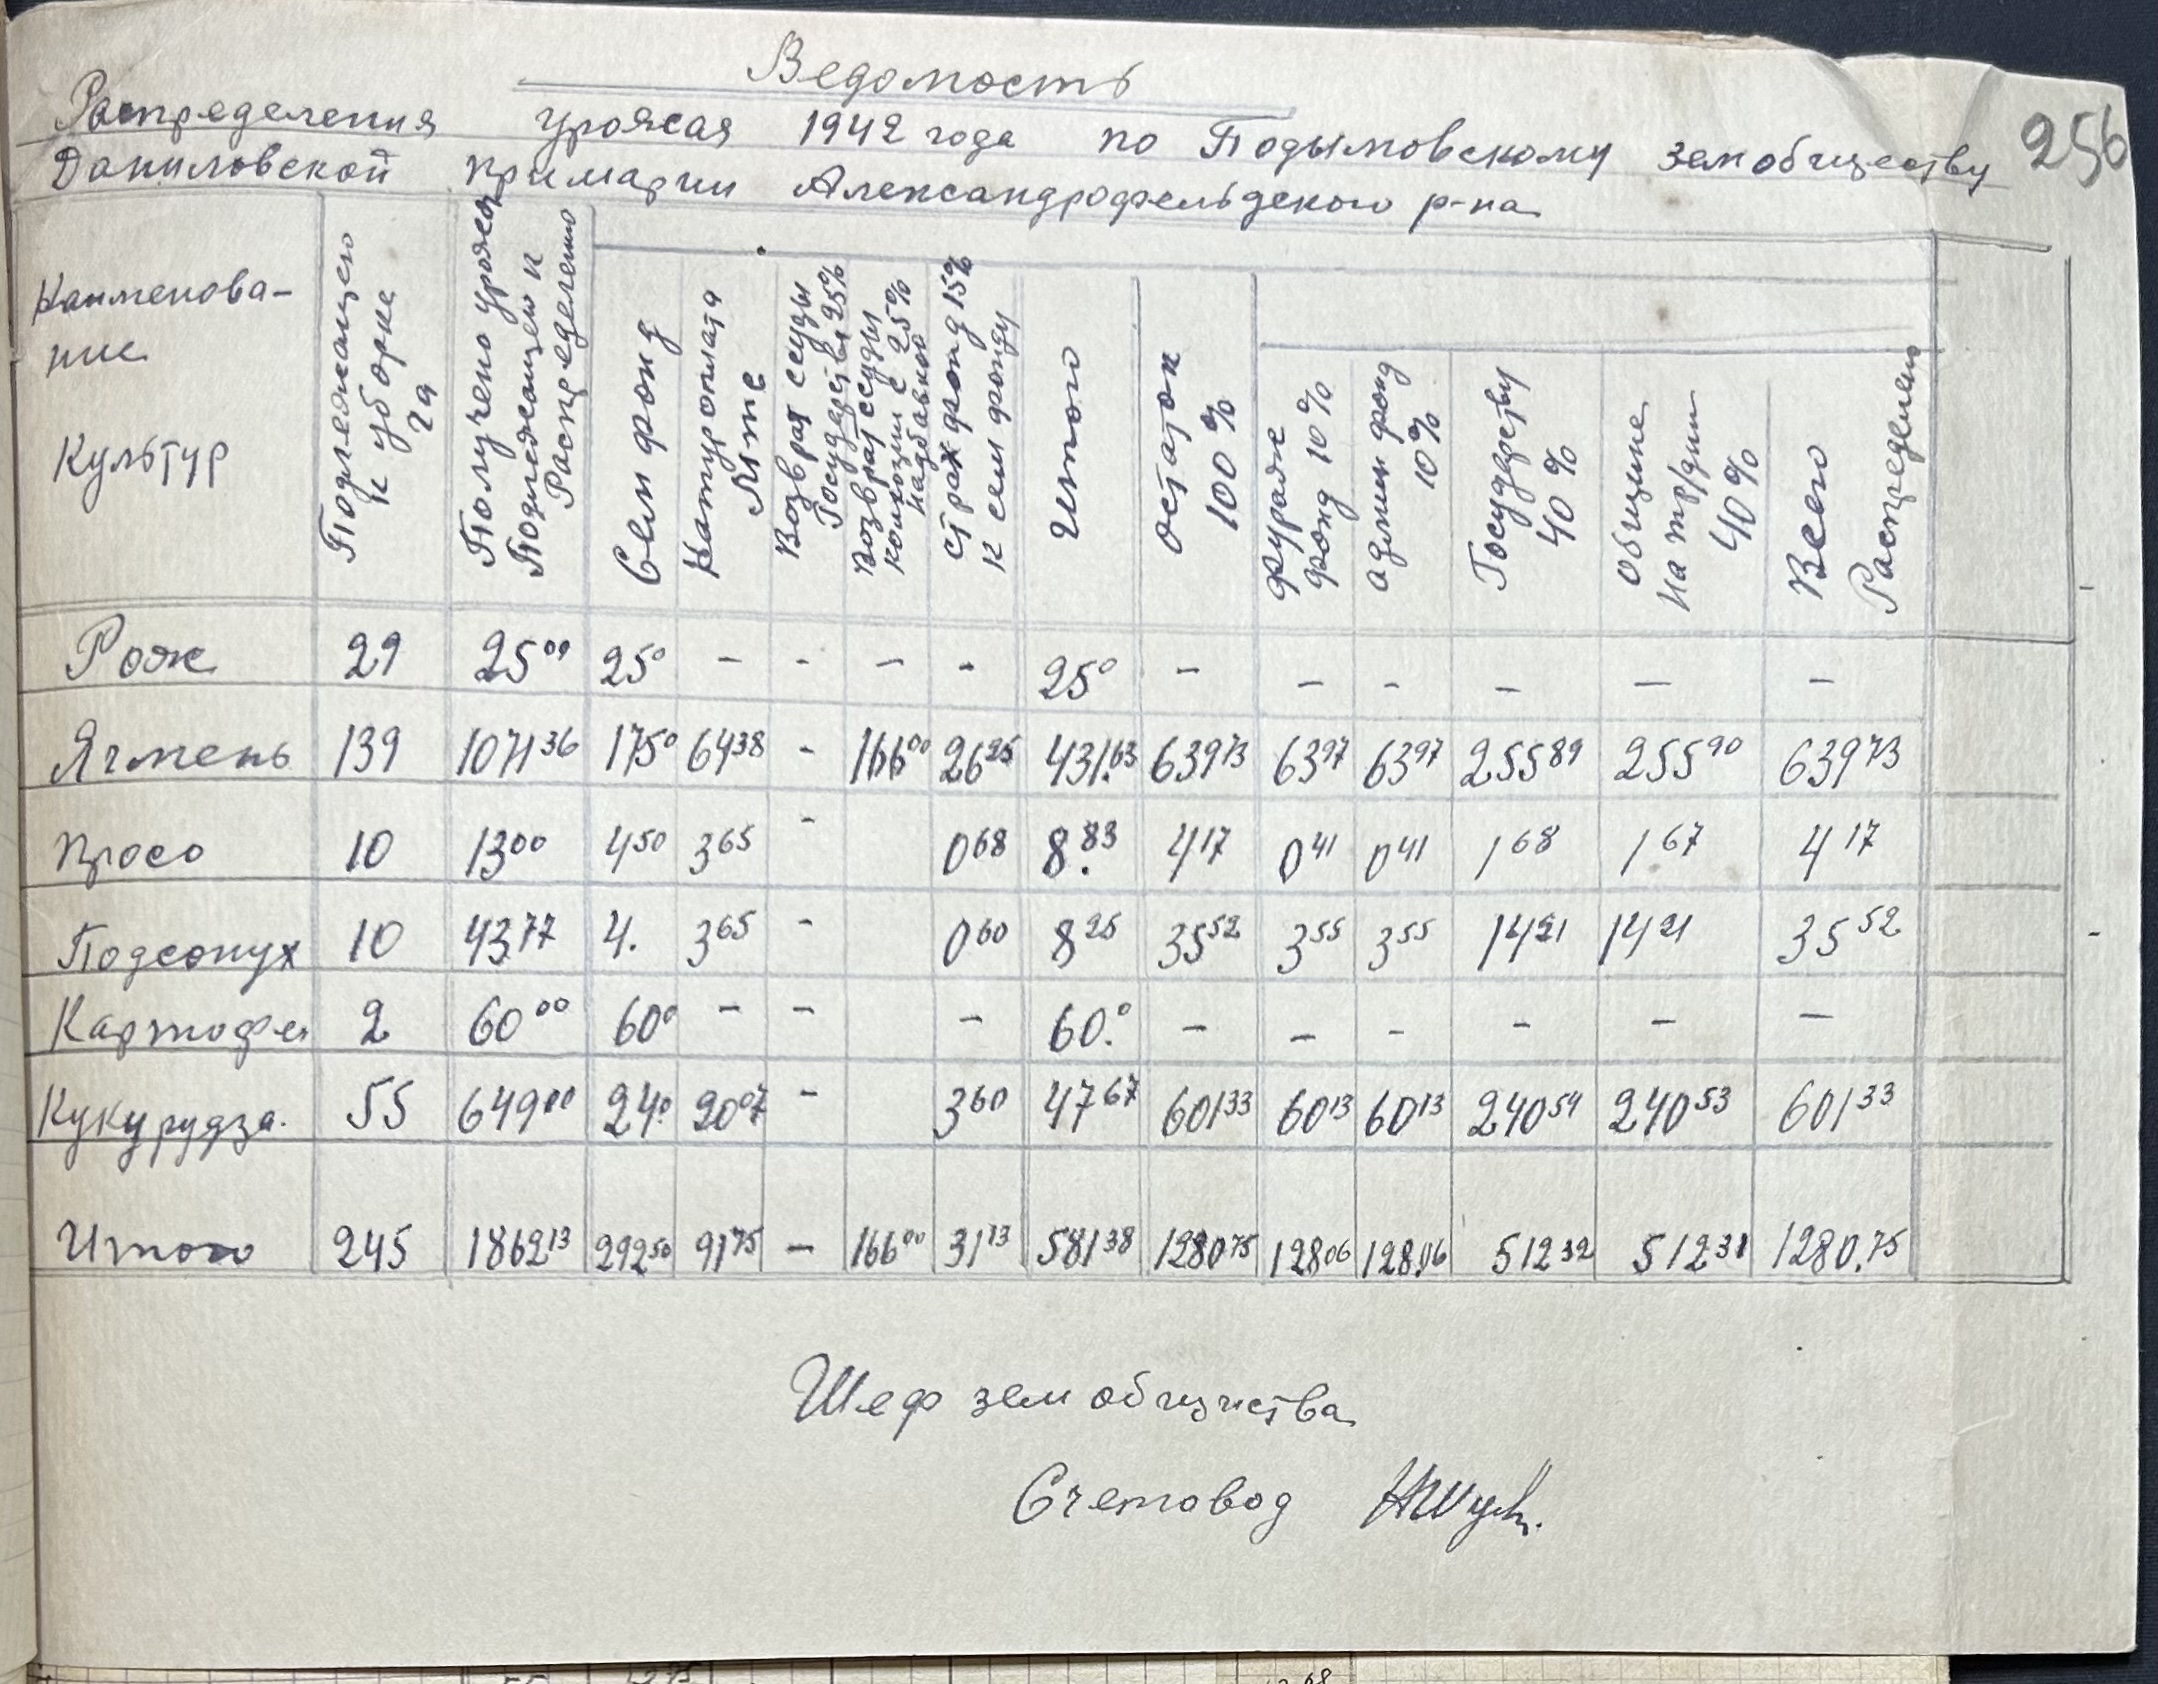 Ведомость
256
Распределения урожая 1942 года по Подымовскому земобществу
Даниловской примарии Александрофельдского р-на
Наименова-
ние
Культур
Подлежащего
к уборке
га
Получено урожая
Подлежащего к
Распределению
Сем фонд
Натуроплата
Мтс
Возврат ссуды
Государству 25%
Возврат ссуды
с 25%
надбавкой
Страх фонд 15%
к сем фонду
Итого
Остаток
100%
Фураже
фонд 10%
админ фонд
10%
Государству
40%
Общине
на тр/дни
40%
Всего
Распределено
Рож 29 25⁰⁰ 25⁰ – – – – 25⁰ – – – – – –
Ячмень 139 1071³⁶ 175⁰ 64³⁸ – 166⁰⁰ 26²⁵ 431.⁶³ 639⁷³ 63⁹⁷ 63⁹⁷ 255⁸⁹ 255⁹⁰ 639⁷³
Просо 10 13⁰⁰ 4⁵⁰ 3⁶⁵ – 0⁶⁸ 8.⁸³ 4¹⁷ 0⁴¹ 0⁴¹ 1⁶⁸ 1⁶⁷ 4¹⁷
Подсонух 10 43⁷⁷ 4. 3⁶⁵ – 0⁶⁰ 8²⁵ 35⁵² 3⁵⁵ 3⁵⁵ 14²¹ 14²¹ 35⁵²
Картофел 2 60⁰⁰ 60⁰ – – – 60.⁰ – – – – – –
Кукурудза. 55 649⁰⁰ 24.⁰ 20⁰⁷ – 3⁶⁰ 47⁶⁷ 601³³ 60¹³ 60¹³ 240⁵⁴ 240⁵³ 601³³
Итого 245 1862¹³ 292⁵⁰ 91⁷⁵ – 166⁰⁰ 31¹³ 581³⁸ 1280⁷⁵ 128⁰⁶ 128.⁰⁶ 512³² 512³¹ 1280.⁷⁵
Шеф земобщиства
Счетовод